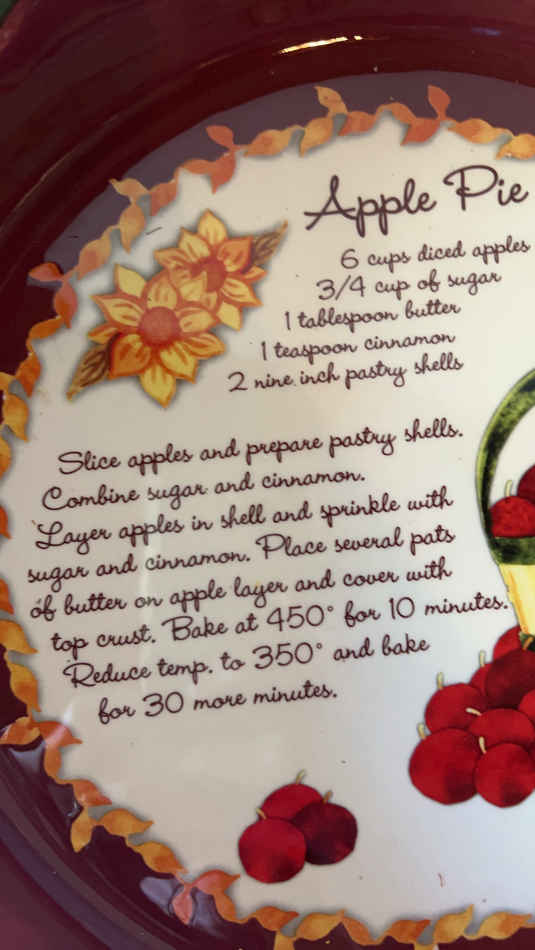 Apple Pie
6 cups diced apples
3/4 cup of sugar
1 tablespoon butter
1 teaspoon cinnamon
2 nine inch pastry shells
Slice apples and prepare pastry shells.
Combine sugar and cinnamon.
Layer apples in shell and sprinkle with
sugar and cinnamon. Place several pats
of butter on apple layer and cover with
top crust. Bake at 450° for 10 minutes.
Reduce temp. to 350° and bake
for 30 more minutes.